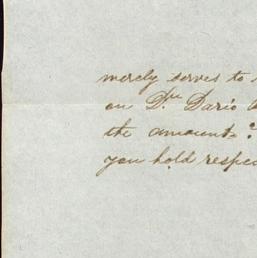 merely serves to
on Dn Dario
the amounts
you hold respec